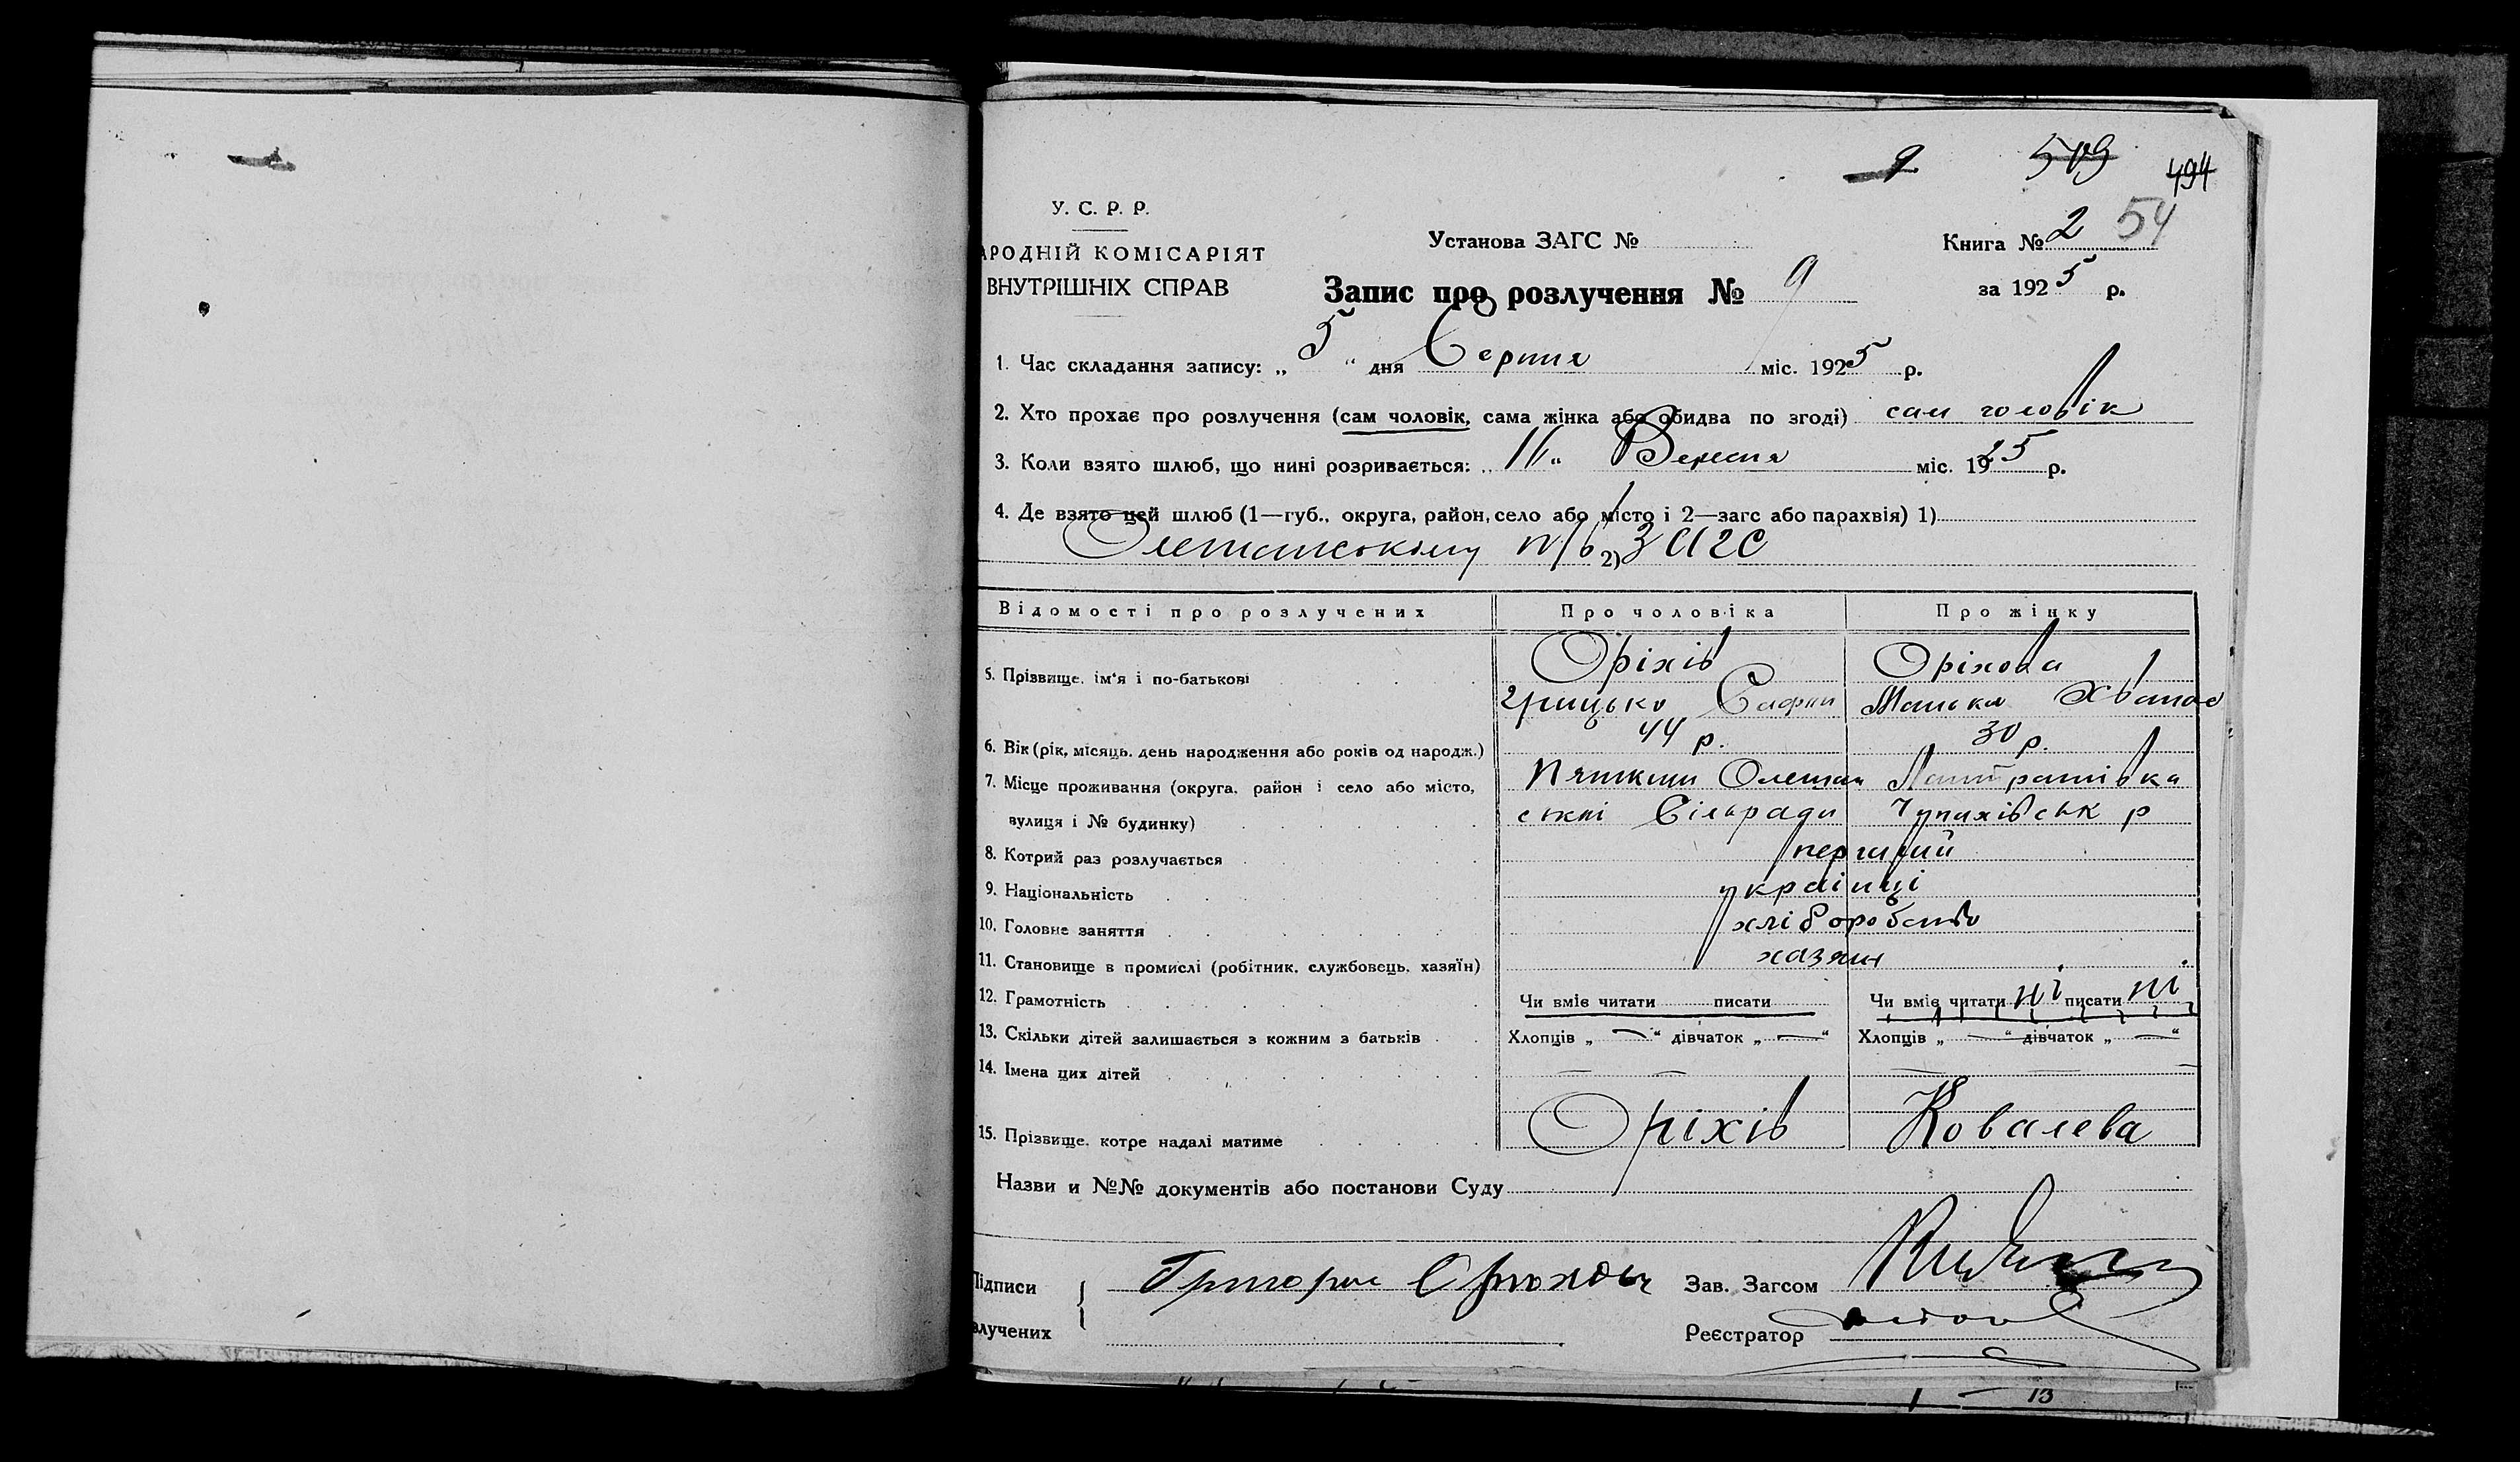 9 509 494
У. С. Р. Р.
АРОДНІЙ КОМІСАРІЯТ
ВНУТРІШНІХ СПРАВ
Установа ЗАГС №
Книга № 2 54
за 1925 р.
Запис про розлучення № 9
1. Час складання запису: „ 5 “ дня Серпня міс. 1925 р.
2. Хто прохає про розлучення (сам чоловік, сама жінка або обидва по згоді) сам чоловік
3. Коли взято шлюб, що нині розривається: „ “ Вересня міс. 1925 р.
4. Де взято цей шлюб (1—губ., округа, район, село або місто і 2—загс або парахвія) 1)
2) ЗАГС
Відомості про розлучених Про чоловіка Про жінку
5. Прізвище, ім'я і по-батькові Оріхів Оріхова
Грицько Манька Хванас
6. Вік (рік, місяць, день народження або років од народж.) 44 р. 30 р.
7. Місце проживання (округа, район і село або місто, Олешан
вулиця і № будинку) Сільради Чупахівськ р
8. Котрий раз розлучається перший
9. Національність українці
10. Головне заняття хліборобство
11. Становище в промислі (робітник, службовець, хазяїн) хазяин
12. Грамотність Чи вміє читати писати Чи вміє читати ні писати ні
13. Скільки дітей залишається з кожним з батьків Хлопців „ — “ дівчаток „ — “ Хлопців „ — “ дівчаток „ — “
14. Імена цих дітей — — — — —
15. Прізвище, котре надалі матиме Оріхів Ковалева
Назви и №№ документів або постанови Суду
Підписи Григорий Зав. Загсом
злучених Реєстратор
13